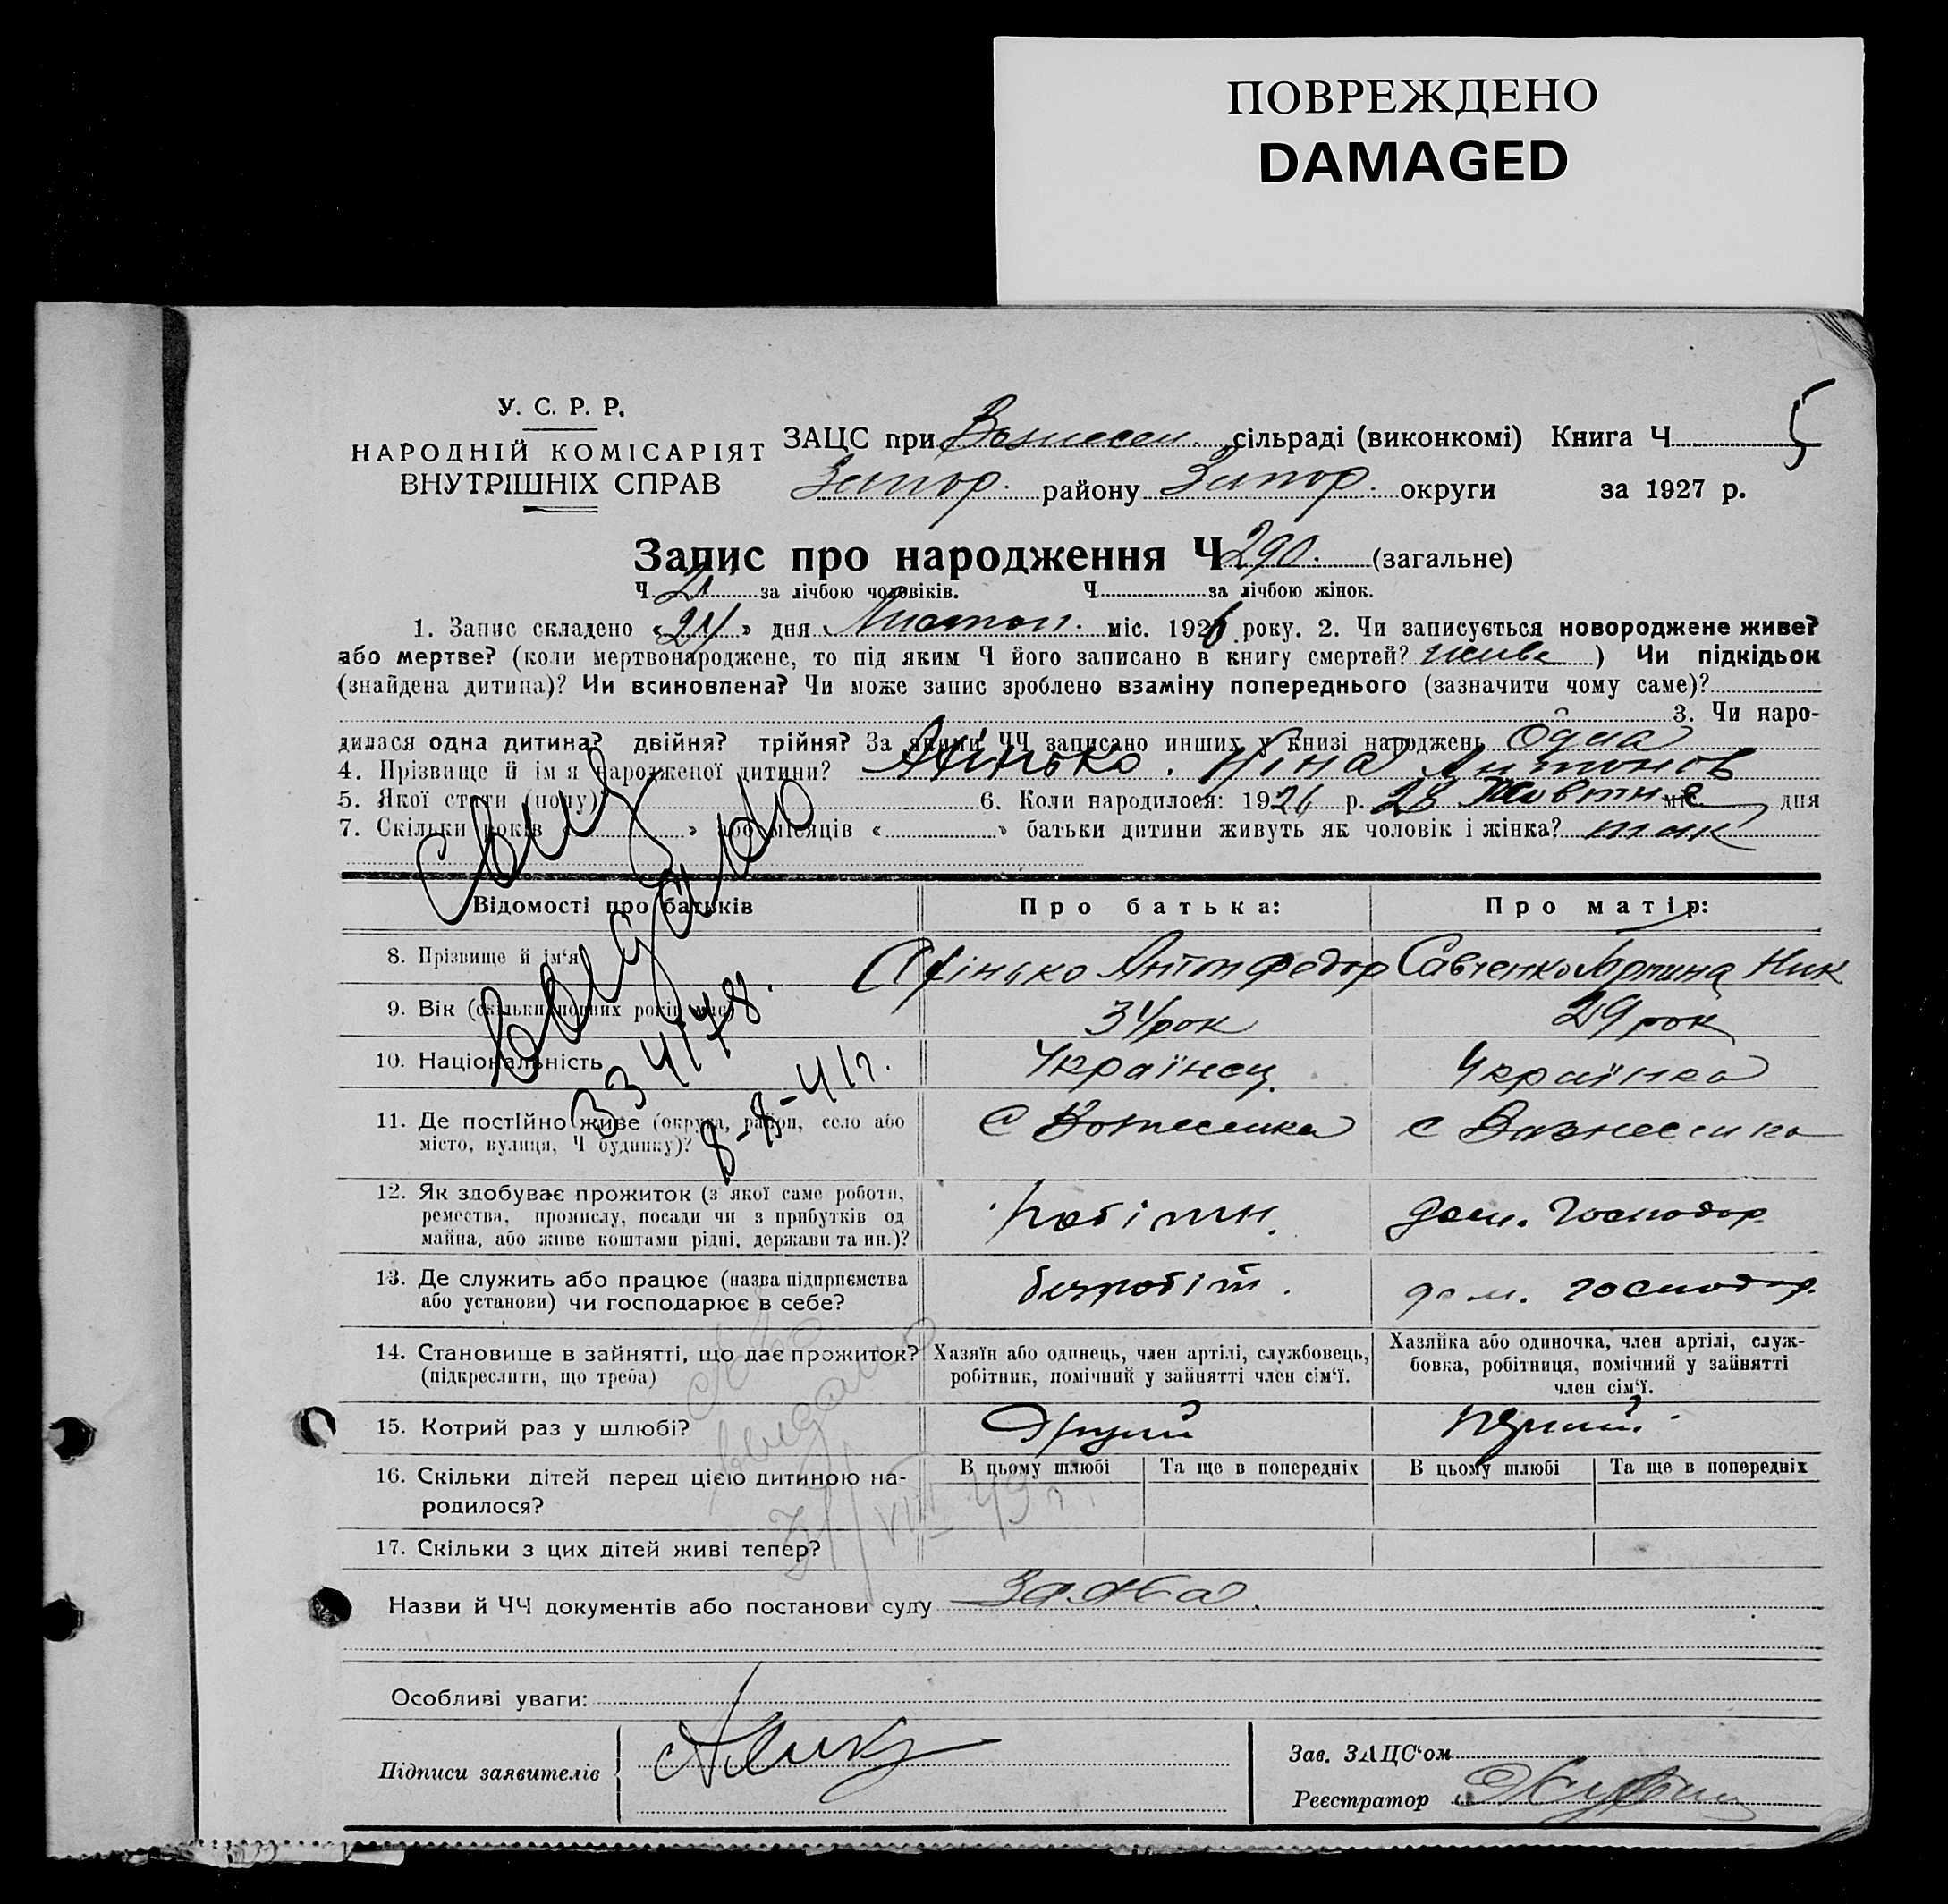 ПОВРЕЖДЕНО
DAMAGED
У. С. Р. Р.
НАРОДНІЙ КОМІСАРІЯТ
ВНУТРІШНІХ СПРАВ
ЗАЦС при Вознесен. сільраді (виконкомі) Книга Ч 5
Запор. району Запор. округи за 1927 р.
Запис про народження Ч 290. (загальне)
Ч. за лічбою чоловіків. Ч. за лічбою жінок.
1. Запис складено «24» дня Листоп. міс. 1926 року. 2. Чи записується новороджене живе?
або мертве? (коли мертвонароджене, то під яким Ч його записано в книгу смертей? живе ) Чи підкідьок
(знайдена дитина)? Чи всиновлена? Чи може запис зроблено взаміну попереднього (зазначити чому саме)?
3. Чи наро-
дилася одна дитина? двійня? трійня? За якими ЧЧ записано инших у книзі народжень Одна
4. Прізвище й ім'я народженої дитини? Яхінько. Ніна Антонов
5. Якої стати (полу) 6. Коли народилося: 1926 р. 28 Жовтня міс. дня
7. Скільки років « » або місяців « » батьки дитини живуть як чоловік і жінка? так
Свид
выдано
334178.
8-8-41г.
Відомості про батьків Про батька: Про матір:
8. Прізвище й ім'я Яхінько Антон Федор Савченко Ник
9. Вік (скільки повних років має) 34 рок 29 рок
10. Національність Українец. Українка
11. Де постійно живе (округа, район, село або
місто, вулиця, Ч будинку)? С Вознесенка с Вознесенка
12. Як здобуває прожиток (з якої саме роботи,
ремества, промислу, посади чи з прибутків од
майна, або живе коштами рідні, держави та ин.)? робітн. дом. господар
13. Де служить або працює (назва підприємства
або установи) чи господарює в себе? безробіт. дом. господар.
14. Становище в зайнятті, що дає прожиток?
(підкреслити, що треба)
Хазяїн або одинець, член артілі, службовець,
робітник, помічний у зайнятті член сім'ї.
Хазяйка або одиночка, член артілі, служ-
бовка, робітниця, помічний у зайнятті
член сім'ї.
15. Котрий раз у шлюбі? Другий перший.
16. Скільки дітей перед цією дитиною на-
родилося?
В цьому шлюбі Та ще в попередніх В цьому шлюбі Та ще в попередніх
17. Скільки з цих дітей живі тепер?
выдано
VIII 49 г.
Назви й ЧЧ документів або постанови суду Заява.
Особливі уваги:
Підписи заявителів
Зав. ЗАЦС'ом
Реєстратор